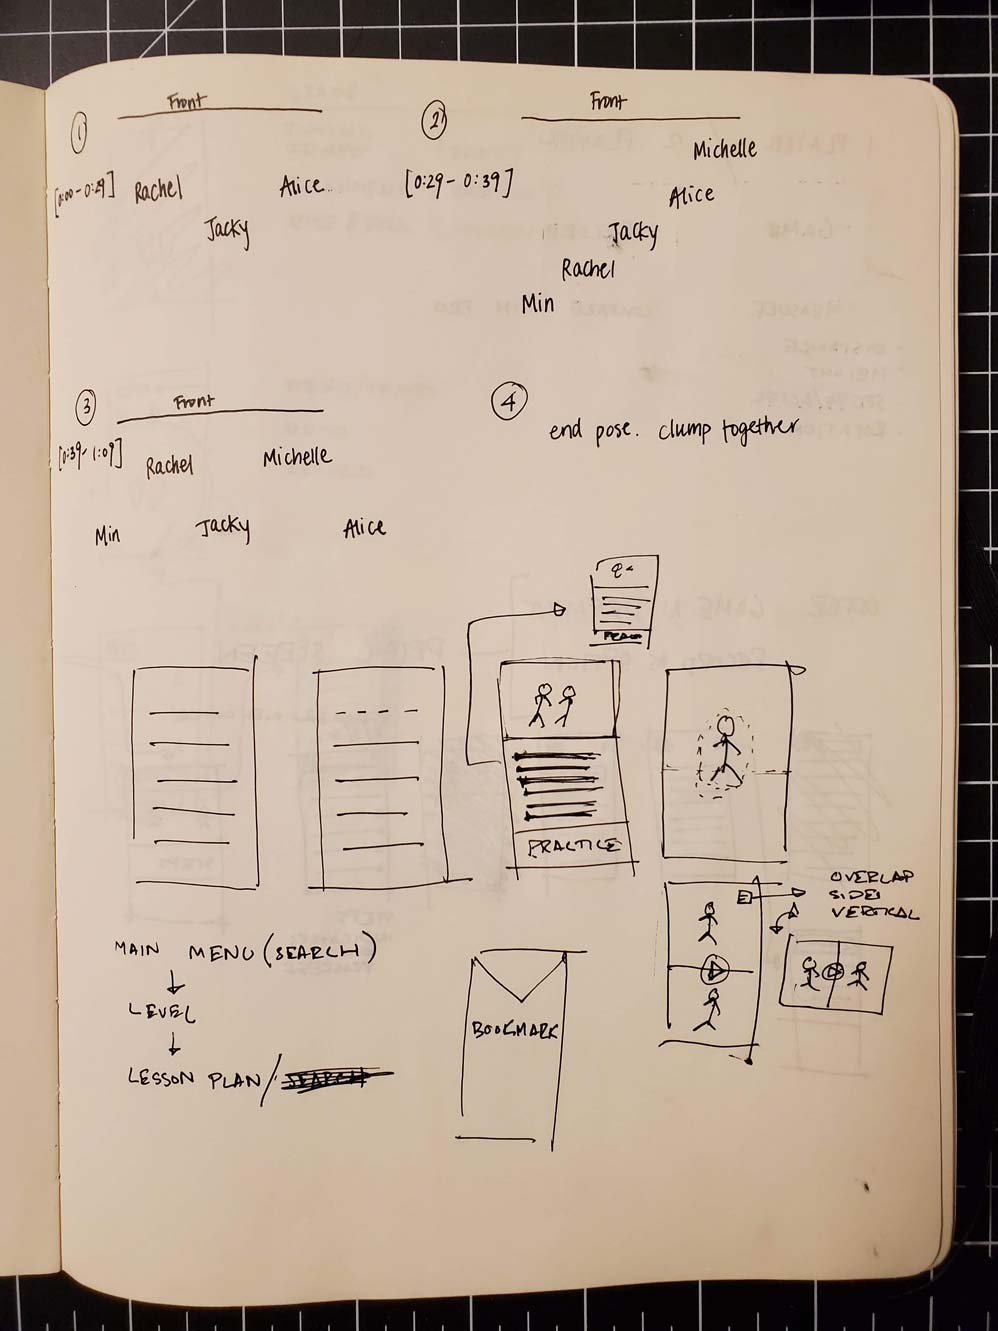 Front
①
[0:00 - 0:29]
Rachel
Alice
Jacky
Front
②
[0:29 - 0:39]
Michelle
Alice
Jacky
Rachel
Min
Front
③
[0:39 - 1:09]
Rachel
Michelle
Min
Jacky
Alice
④
end pose. clump together
PRACTICE
OVERLAP
SIDE
VERTICAL
MAIN MENU (SEARCH)
LEVEL
LESSON PLAN /
BOOKMARK